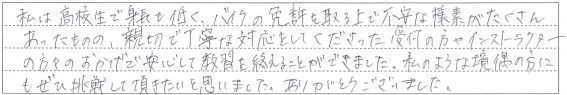 私は高校生で身長も低く、バイクの免許を取る上で不安な様素がたくさん
あったものの、親切で丁寧な対応をしてくださった受付の方やインストラクター
の方々のおかげで安心して教習を終えることができました。私のような境遇の方に
もぜひ挑戦して頂きたいと思いました。ありがとうございました。